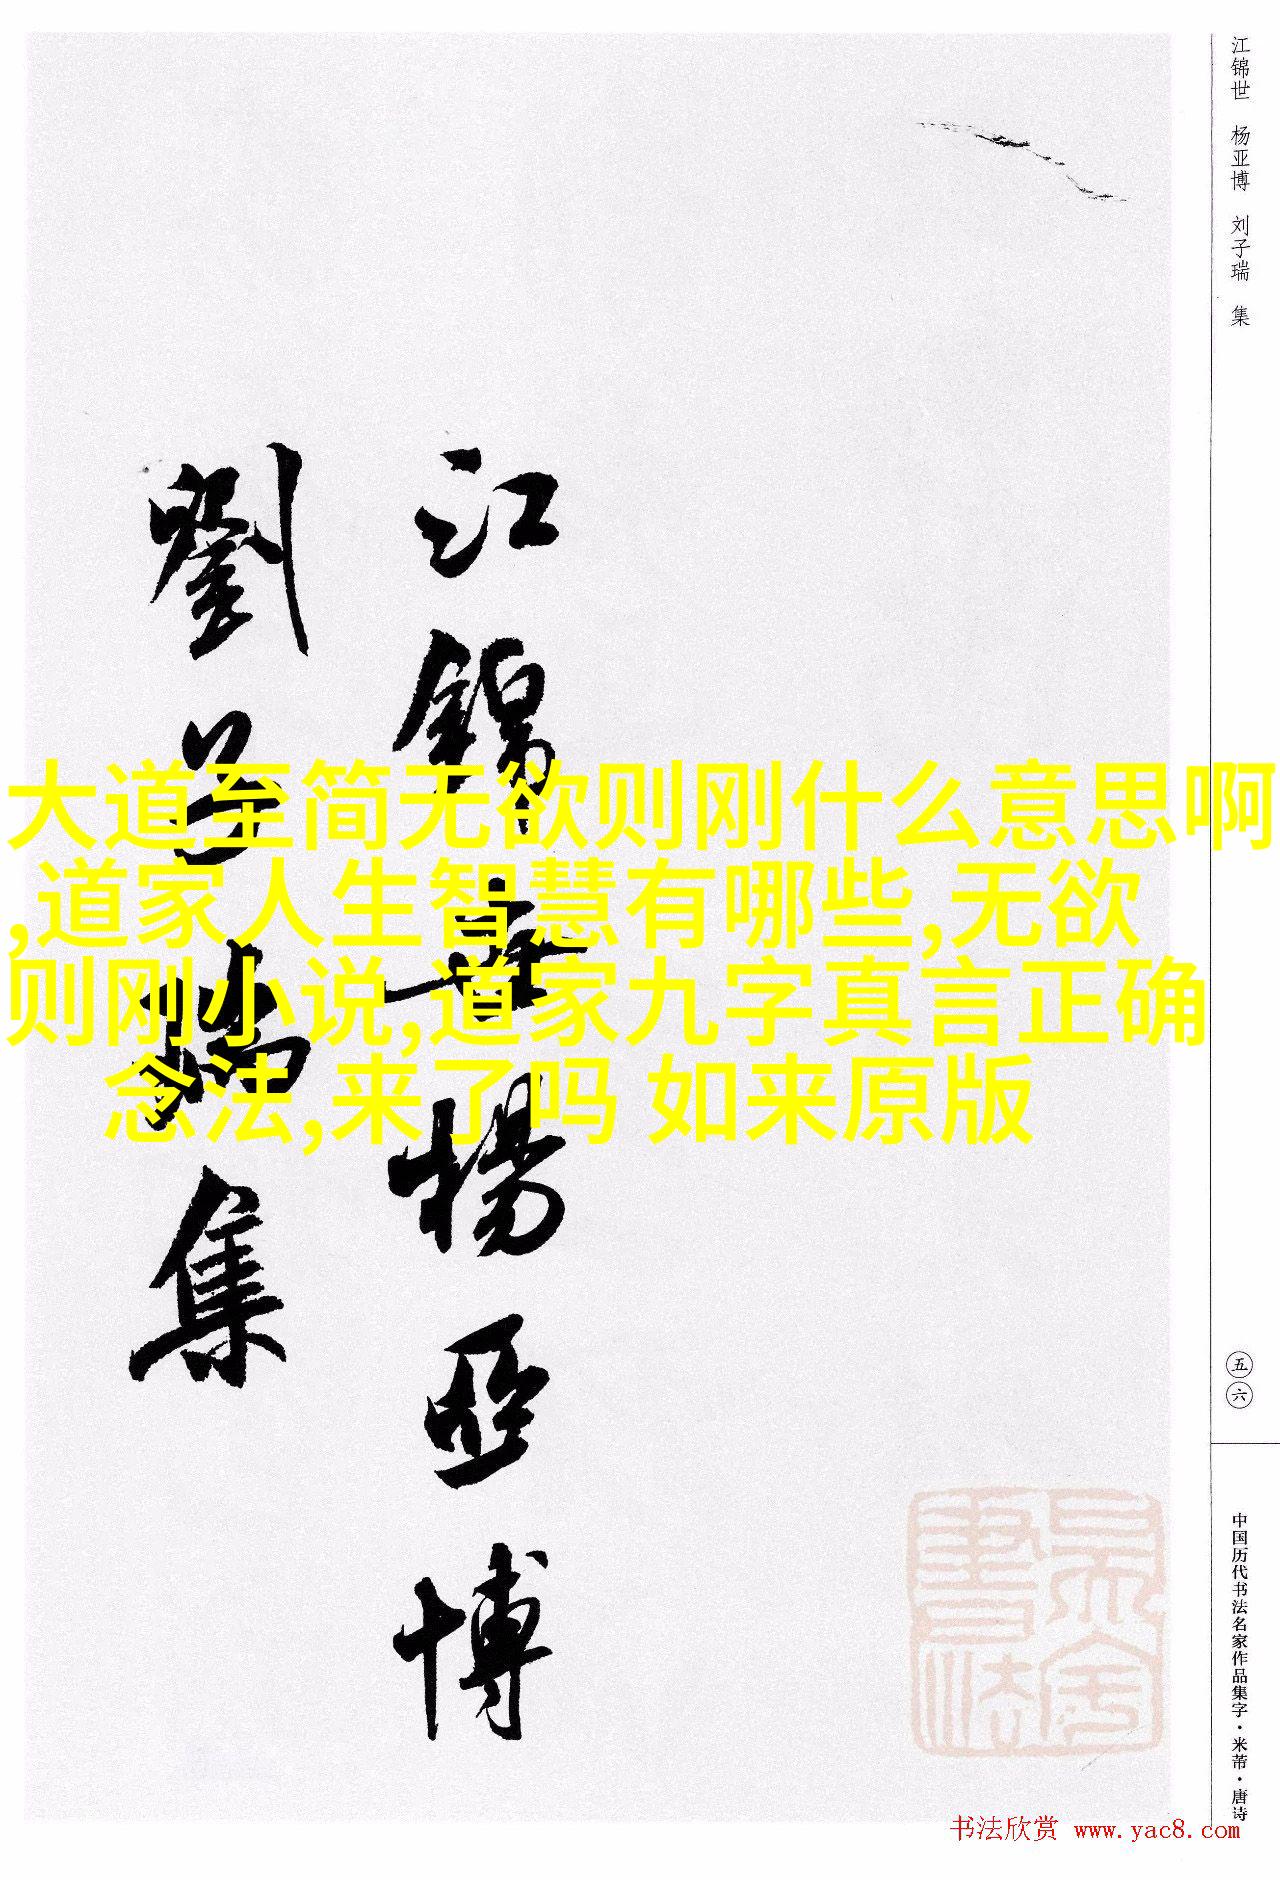 江锦世 杨亚博 刘子瑞 集
江錦世楊亞博
劉子瑞集
大道至简无欲则刚什么意思啊
,道家人生智慧有哪些,无欲
则刚小说,道家九字真言正确
念法,来了吗 如来原版
五六
中国历代书法名家作品集字·米芾·唐诗
书法欣赏 www.yac8.com